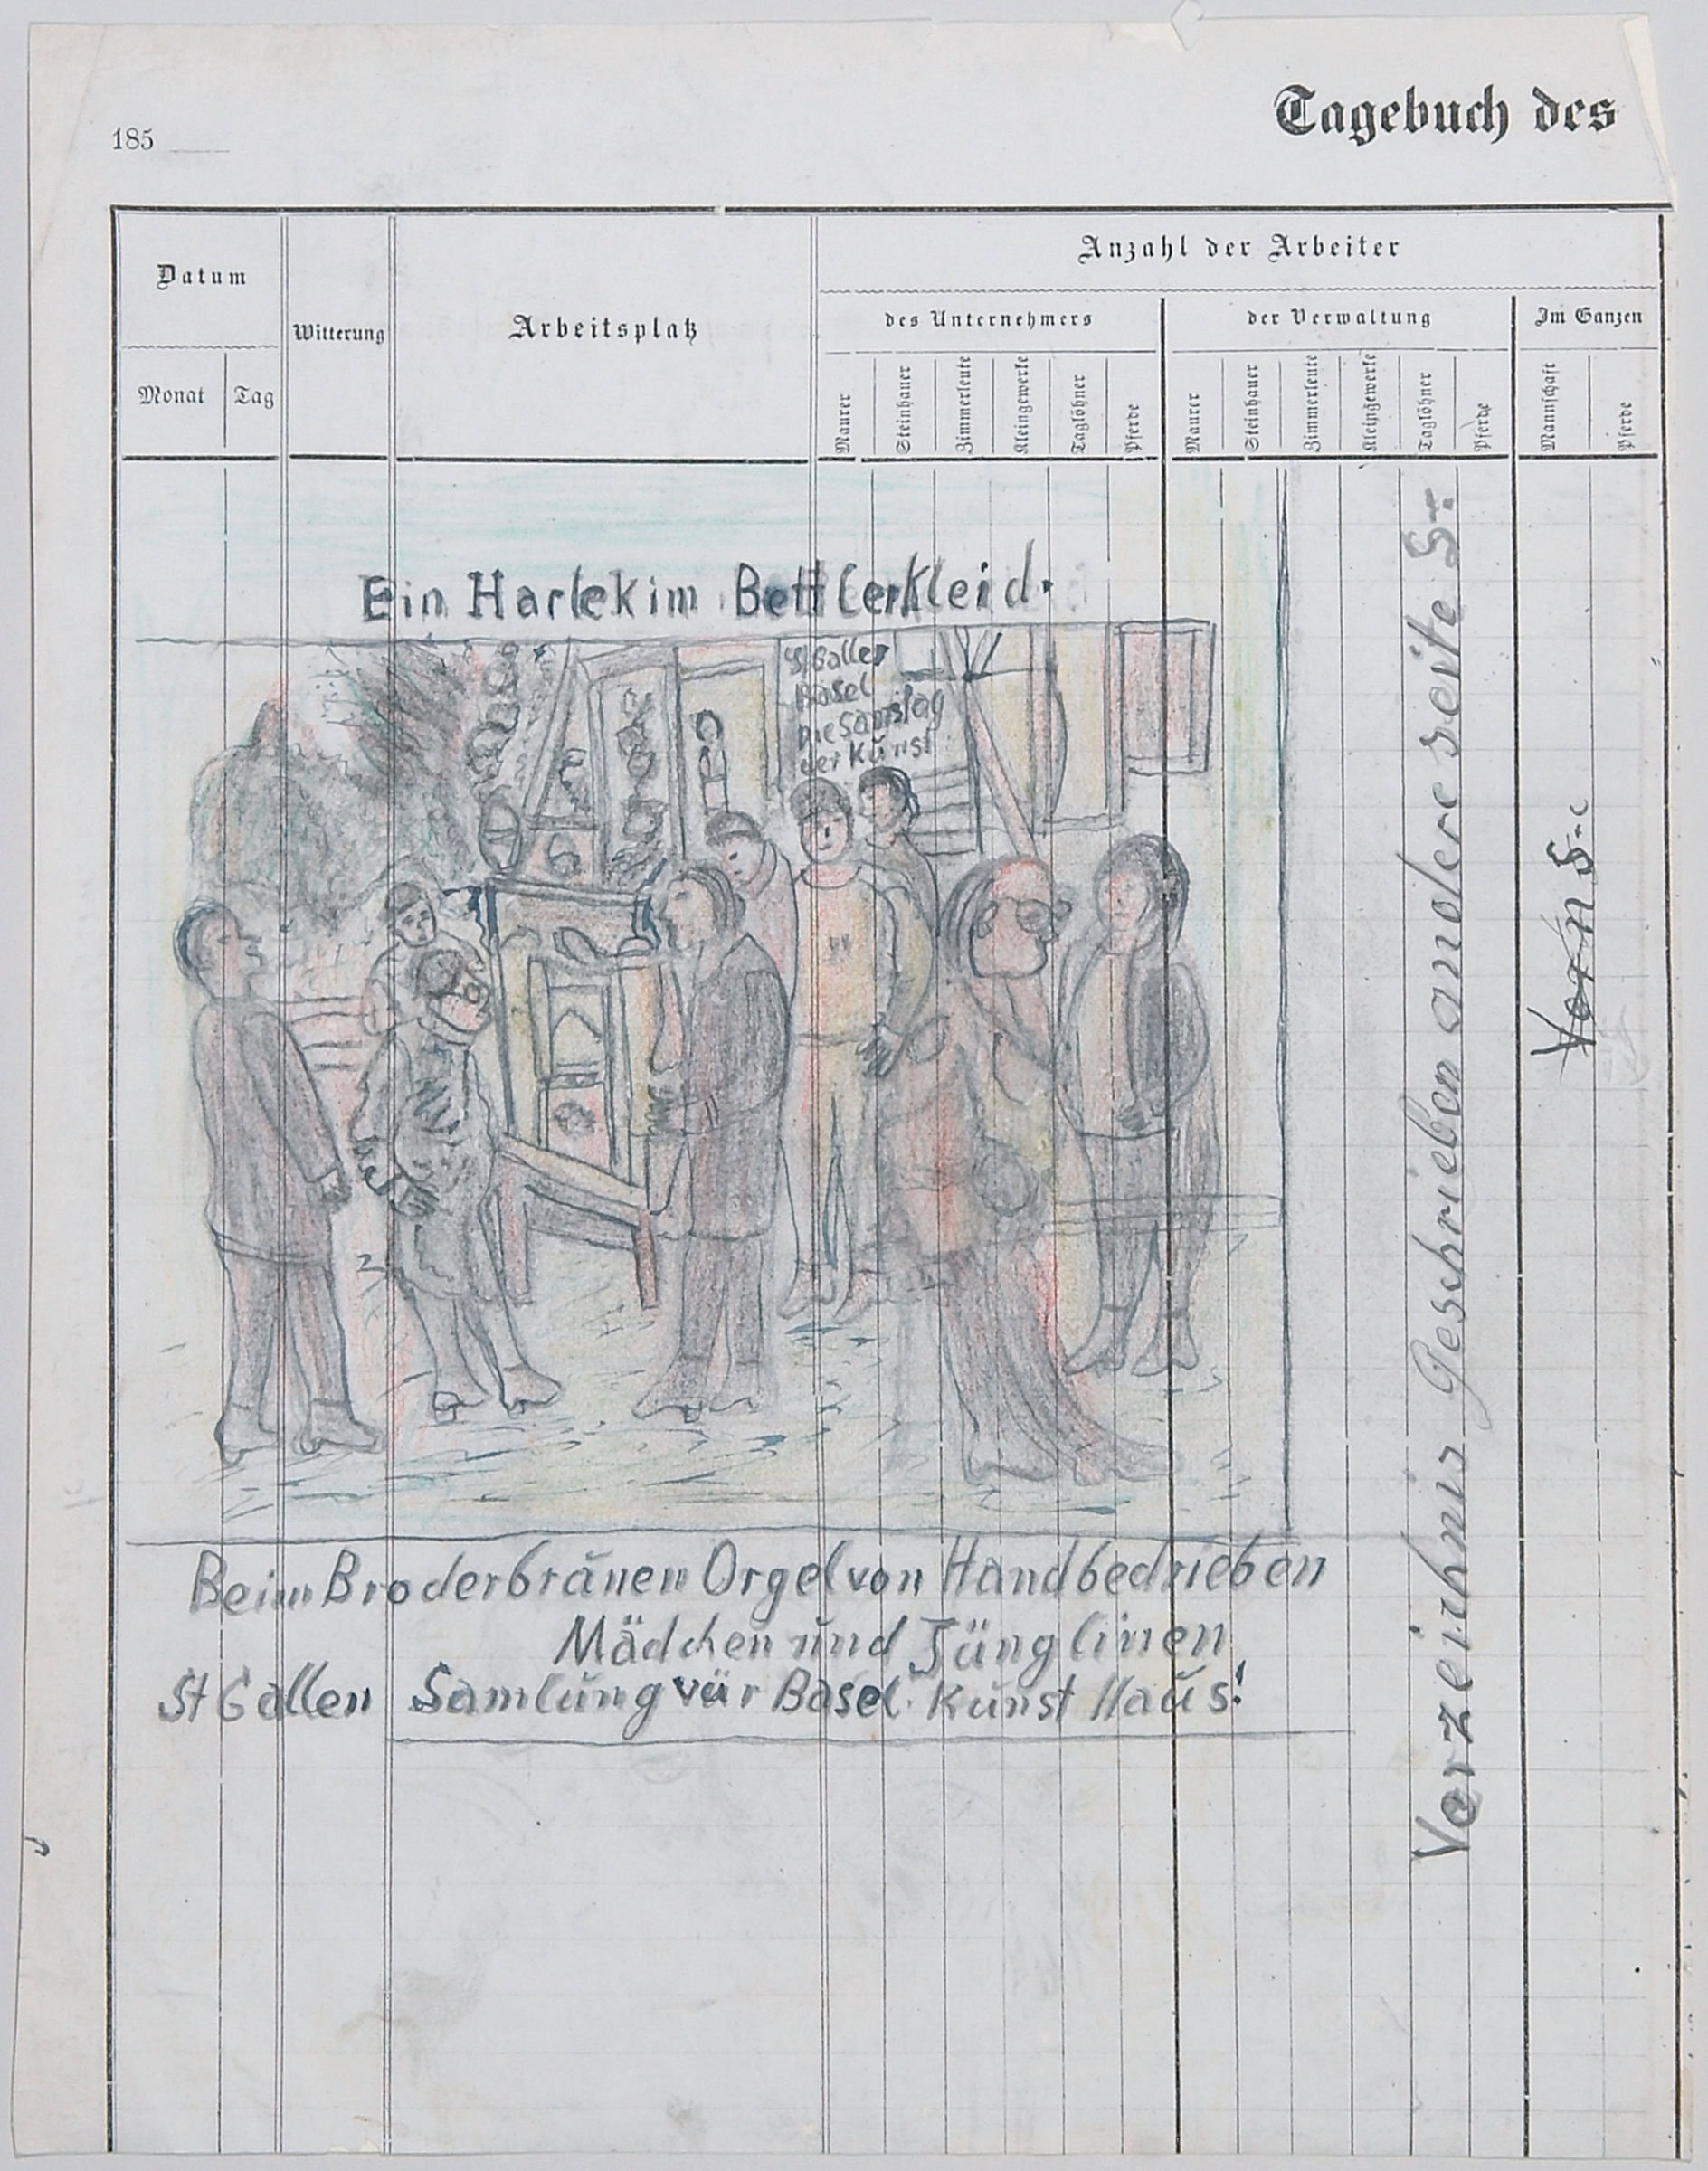 185
Tagebuch des
Anzahl der Arbeiter
Datum
Witterung
Arbeitsplatz
des Unternehmers
der Verwaltung
Im Ganzen
Monat
Tag
Maurer
Steinhauer
Zimmerleute
Kleingewerke
Taglöhner
Pferde
Maurer
Steinhauer
Zimmerleute
Kleingewerke
Taglöhner
Pferde
Mannschaft
Pferde
Ein Harlekim Bettlerkleid.
St Galler
Basel
Die Samstag
der Kunst
Beim Broderbränen Orgel von Handbedrieben
Mädchen und Jünglinen
St Gallen Samlung vür Basel. Kunst Haus!
Verzeichnis Geschrieben andere seite S.
Vorn S.